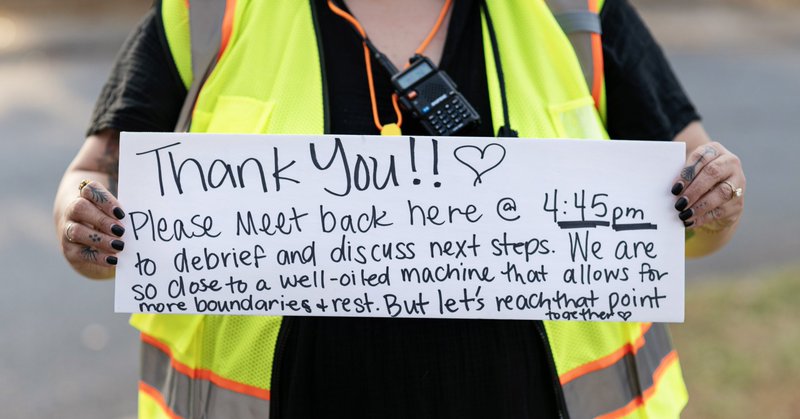 Thank You!! ♡
Please Meet back here @ 4:45pm
to debrief and discuss next steps. We are
so close to a well-oiled machine that allows for
more boundaries + rest. But let's reach that point
together ♡